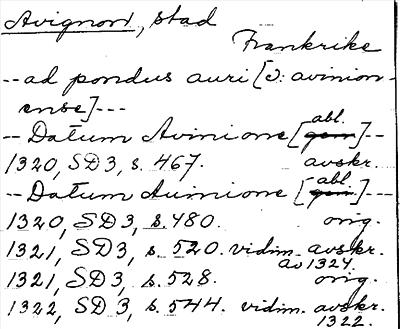 Avignon, stad
Frankrike
--ad pondus auri [ɔ: avinion-
ense]---
--Datum Avinione [gen abl.]--
1320, SD3, s. 467. avskr.
--Datum Auinione [gen abl.]---
1320, SD3, s. 480. orig.
1321, SD3, s. 520. vidim. avskr.
av 1324.
1321, SD3, s. 528. orig.
1322, SD3, s. 544. vidim. avskr.
1322.